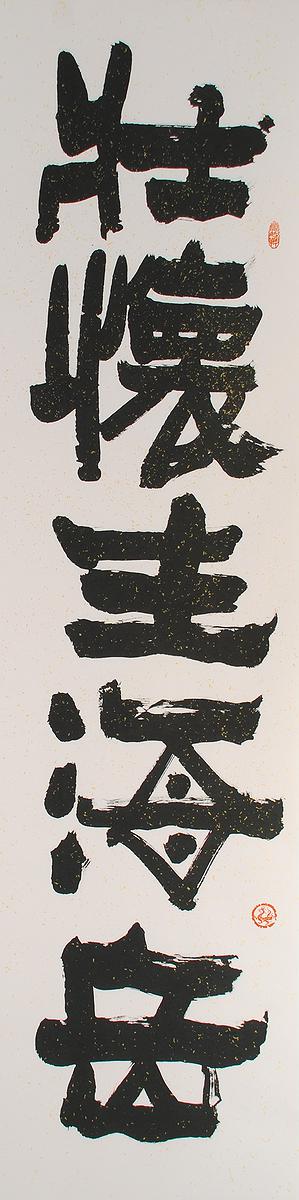 壮懷生海岳